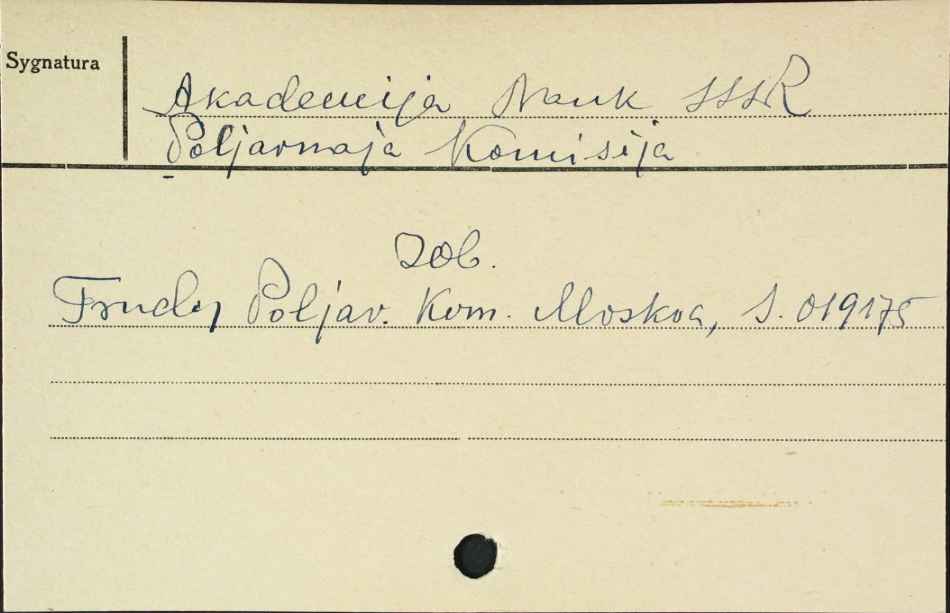 Sygnatura
Akademija Nauk SSSR
Poljarnaja Komisija
zob.
Trudy Poljar. Kom. Moskva, S. 019175